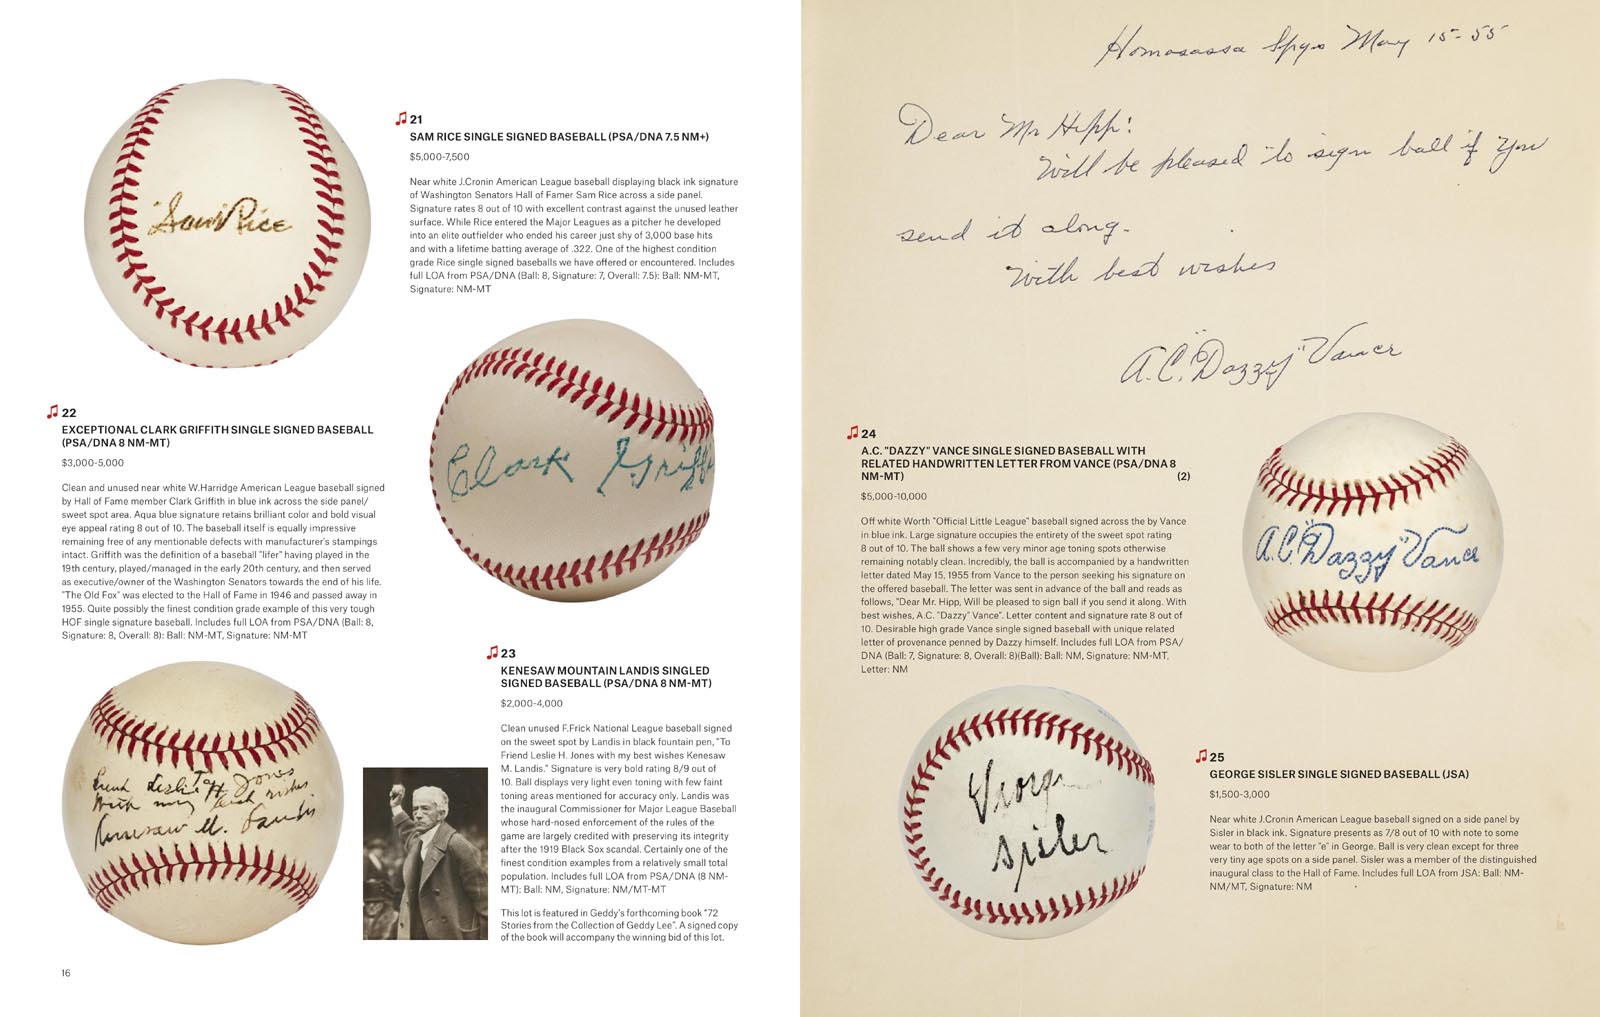 21
SAM RICE SINGLE SIGNED BASEBALL (PSA/DNA 7.5 NM+)
$5,000-7,500
Near white J.Cronin American League baseball displaying black ink signature
of Washington Senators Hall of Famer Sam Rice across a side panel.
Signature rates 8 out of 10 with excellent contrast against the unused leather
surface. While Rice entered the Major Leagues as a pitcher he developed
into an elite outfielder who ended his career just shy of 3,000 base hits
and with a lifetime batting average of .322. One of the highest condition
grade Rice single signed baseballs we have offered or encountered. Includes
full LOA from PSA/DNA (Ball: 8, Signature: 7, Overall: 7.5): Ball: NM-MT,
Signature: NM-MT
"Sam" Rice
22
EXCEPTIONAL CLARK GRIFFITH SINGLE SIGNED BASEBALL
(PSA/DNA 8 NM-MT)
$3,000-5,000
Clean and unused near white W.Harridge American League baseball signed
by Hall of Fame member Clark Griffith in blue ink across the side panel/
sweet spot area. Aqua blue signature retains brilliant color and bold visual
eye appeal rating 8 out of 10. The baseball itself is equally impressive
remaining free of any mentionable defects with manufacturer's stampings
intact. Griffith was the definition of a baseball "lifer" having played in the
19th century, played/managed in the early 20th century, and then served
as executive/owner of the Washington Senators towards the end of his life.
"The Old Fox" was elected to the Hall of Fame in 1946 and passed away in
1955. Quite possibly the finest condition grade example of this very tough
HOF single signature baseball. Includes full LOA from PSA/DNA (Ball: 8,
Signature: 8, Overall: 8): Ball: NM-MT, Signature: NM-MT
Clark Griff
23
KENESAW MOUNTAIN LANDIS SINGLED
SIGNED BASEBALL (PSA/DNA 8 NM-MT)
$2,000-4,000
Clean unused F.Frick National League baseball signed
on the sweet spot by Landis in black fountain pen, "To
Friend Leslie H. Jones with my best wishes Kenesaw
M. Landis." Signature is very bold rating 8/9 out of
10. Ball displays very light even toning with few faint
toning areas mentioned for accuracy only. Landis was
the inaugural Commissioner for Major League Baseball
whose hard-nosed enforcement of the rules of the
game are largely credited with preserving its integrity
after the 1919 Black Sox scandal. Certainly one of the
finest condition examples from a relatively small total
population. Includes full LOA from PSA/DNA (8 NM-
MT): Ball: NM, Signature: NM/MT-MT
This lot is featured in Geddy's forthcoming book "72
Stories from the Collection of Geddy Lee". A signed copy
of the book will accompany the winning bid of this lot.
To
Friend Leslie H. Jones
With my best wishes
Kenesaw M. Landis
16
Homosassa Spgs May 15-55
Dear Mr Hipp!
Will be pleased to sign ball if you
send it along.
With best wishes
A.C. "Dazzy" Vance
24
A.C. "DAZZY" VANCE SINGLE SIGNED BASEBALL WITH
RELATED HANDWRITTEN LETTER FROM VANCE (PSA/DNA 8
NM-MT) (2)
$5,000-10,000
Off white Worth "Official Little League" baseball signed across the by Vance
in blue ink. Large signature occupies the entirety of the sweet spot rating
8 out of 10. The ball shows a few very minor age toning spots otherwise
remaining notably clean. Incredibly, the ball is accompanied by a handwritten
letter dated May 15, 1955 from Vance to the person seeking his signature on
the offered baseball. The letter was sent in advance of the ball and reads as
follows, "Dear Mr. Hipp, Will be pleased to sign ball if you send it along. With
best wishes, A.C. "Dazzy" Vance". Letter content and signature rate 8 out of
10. Desirable high grade Vance single signed baseball with unique related
letter of provenance penned by Dazzy himself. Includes full LOA from PSA/
DNA (Ball: 7, Signature: 8, Overall: 8)(Ball): Ball: NM, Signature: NM-MT,
Letter: NM
A.C. "Dazzy" Vance
25
GEORGE SISLER SINGLE SIGNED BASEBALL (JSA)
$1,500-3,000
Near white J.Cronin American League baseball signed on a side panel by
Sisler in black ink. Signature presents as 7/8 out of 10 with note to some
wear to both of the letter "e" in George. Ball is very clean except for three
very tiny age spots on a side panel. Sisler was a member of the distinguished
inaugural class to the Hall of Fame. Includes full LOA from JSA: Ball: NM-
NM/MT, Signature: NM
George
Sisler